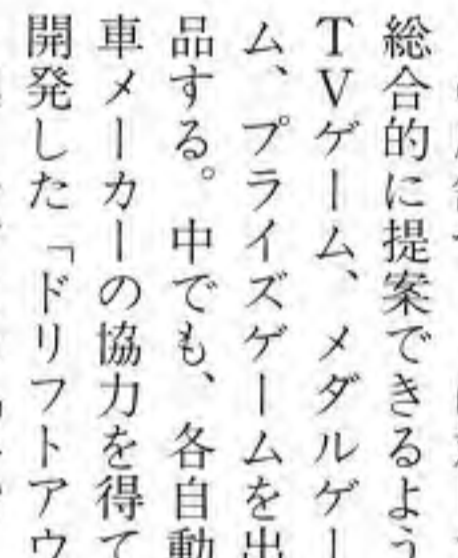 総合的に提案できるよう
TVゲーム、メダルゲー
ム、プライズゲームを出
品する。中でも、各自動
車メーカーの協力を得て
開発した「ドリフトアウ